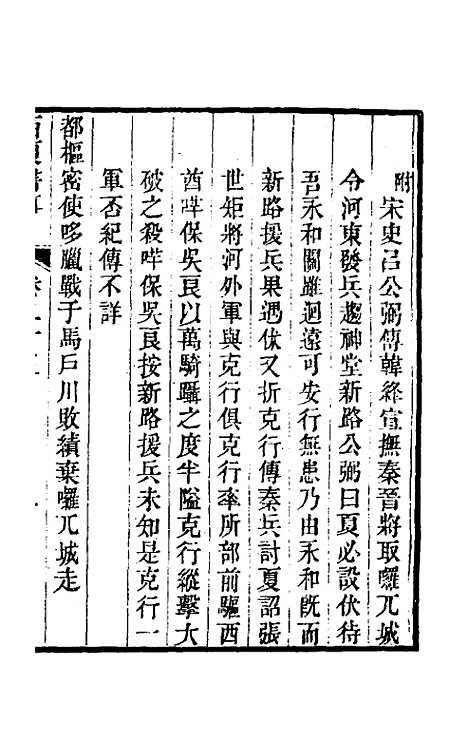 附 宋史呂公弼傳韓絳宣撫秦晉將取囉兀城
令河東發兵趨神堂新路公弼曰夏必設伏待
吾永和關雖迴遠可安行無患乃由永和旣而
新路援兵果遇伏又折克行傳秦兵討夏詔張
世矩將河外軍與克行俱克行率所部前驅西
酋咩保吳良以萬騎躡之度半隘克行縱擊大
破之殺咩保吳良按新路援兵未知是克行一
軍否紀傳不詳
都樞密使哆臘戰于馬戶川敗績棄囉兀城走